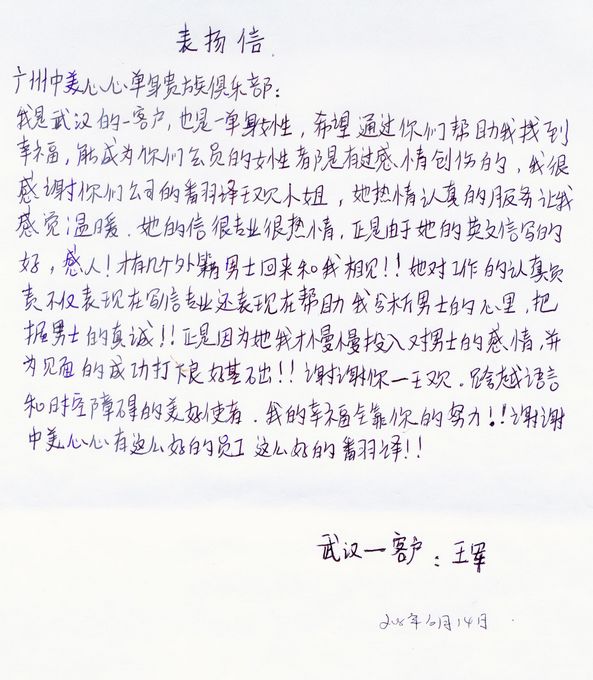 表扬信
广州中美心心单身贵族俱乐部：
我是武汉的一客户，也是一单身女性，希望通过你们帮助我找到
幸福，能成为你们会员的女性都是有过感情创伤的，我很
感谢你们公司的翻译王欢小姐，她热情认真的服务让我
感觉温暖。她的信很专业很热情，正是由于她的英文信写的
好，感人！才有几个外籍男士回来和我相见！！她对工作的认真负
责不仅表现在写信专业还表现在帮助我分析男士的心里，把
握男士的真诚！！正是因为她我才慢慢投入对男士的感情，并
为见面的成功打下良好基础！！谢谢你一王欢．跨越语言
和时空障碍的美好使者．我的幸福全靠你的努力！！谢谢
中美心心有这么好的员工 这么好的翻译！！
武汉一客户：王军
月14日